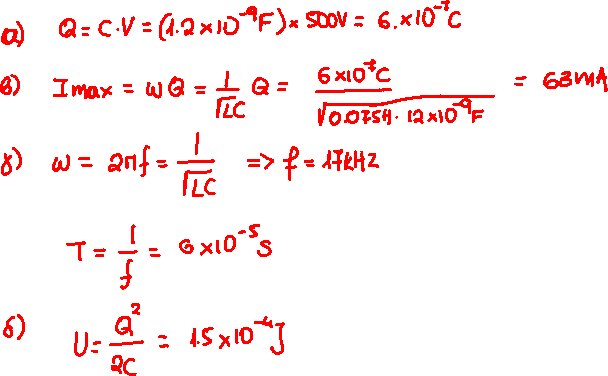 α) Q = C·V = (1.2×10⁻⁹F)× 500V = 6.×10⁻⁷C
β) Imax = ωQ = 1/√LC Q = 6×10⁻⁷C / √0.075H · 12×10⁻⁹F = 63mA
γ) ω = 2πf = 1/√LC => f = 17kHz
T = 1/f = 6×10⁻⁵s
δ) U = Q²/2C = 1.5×10⁻⁴J